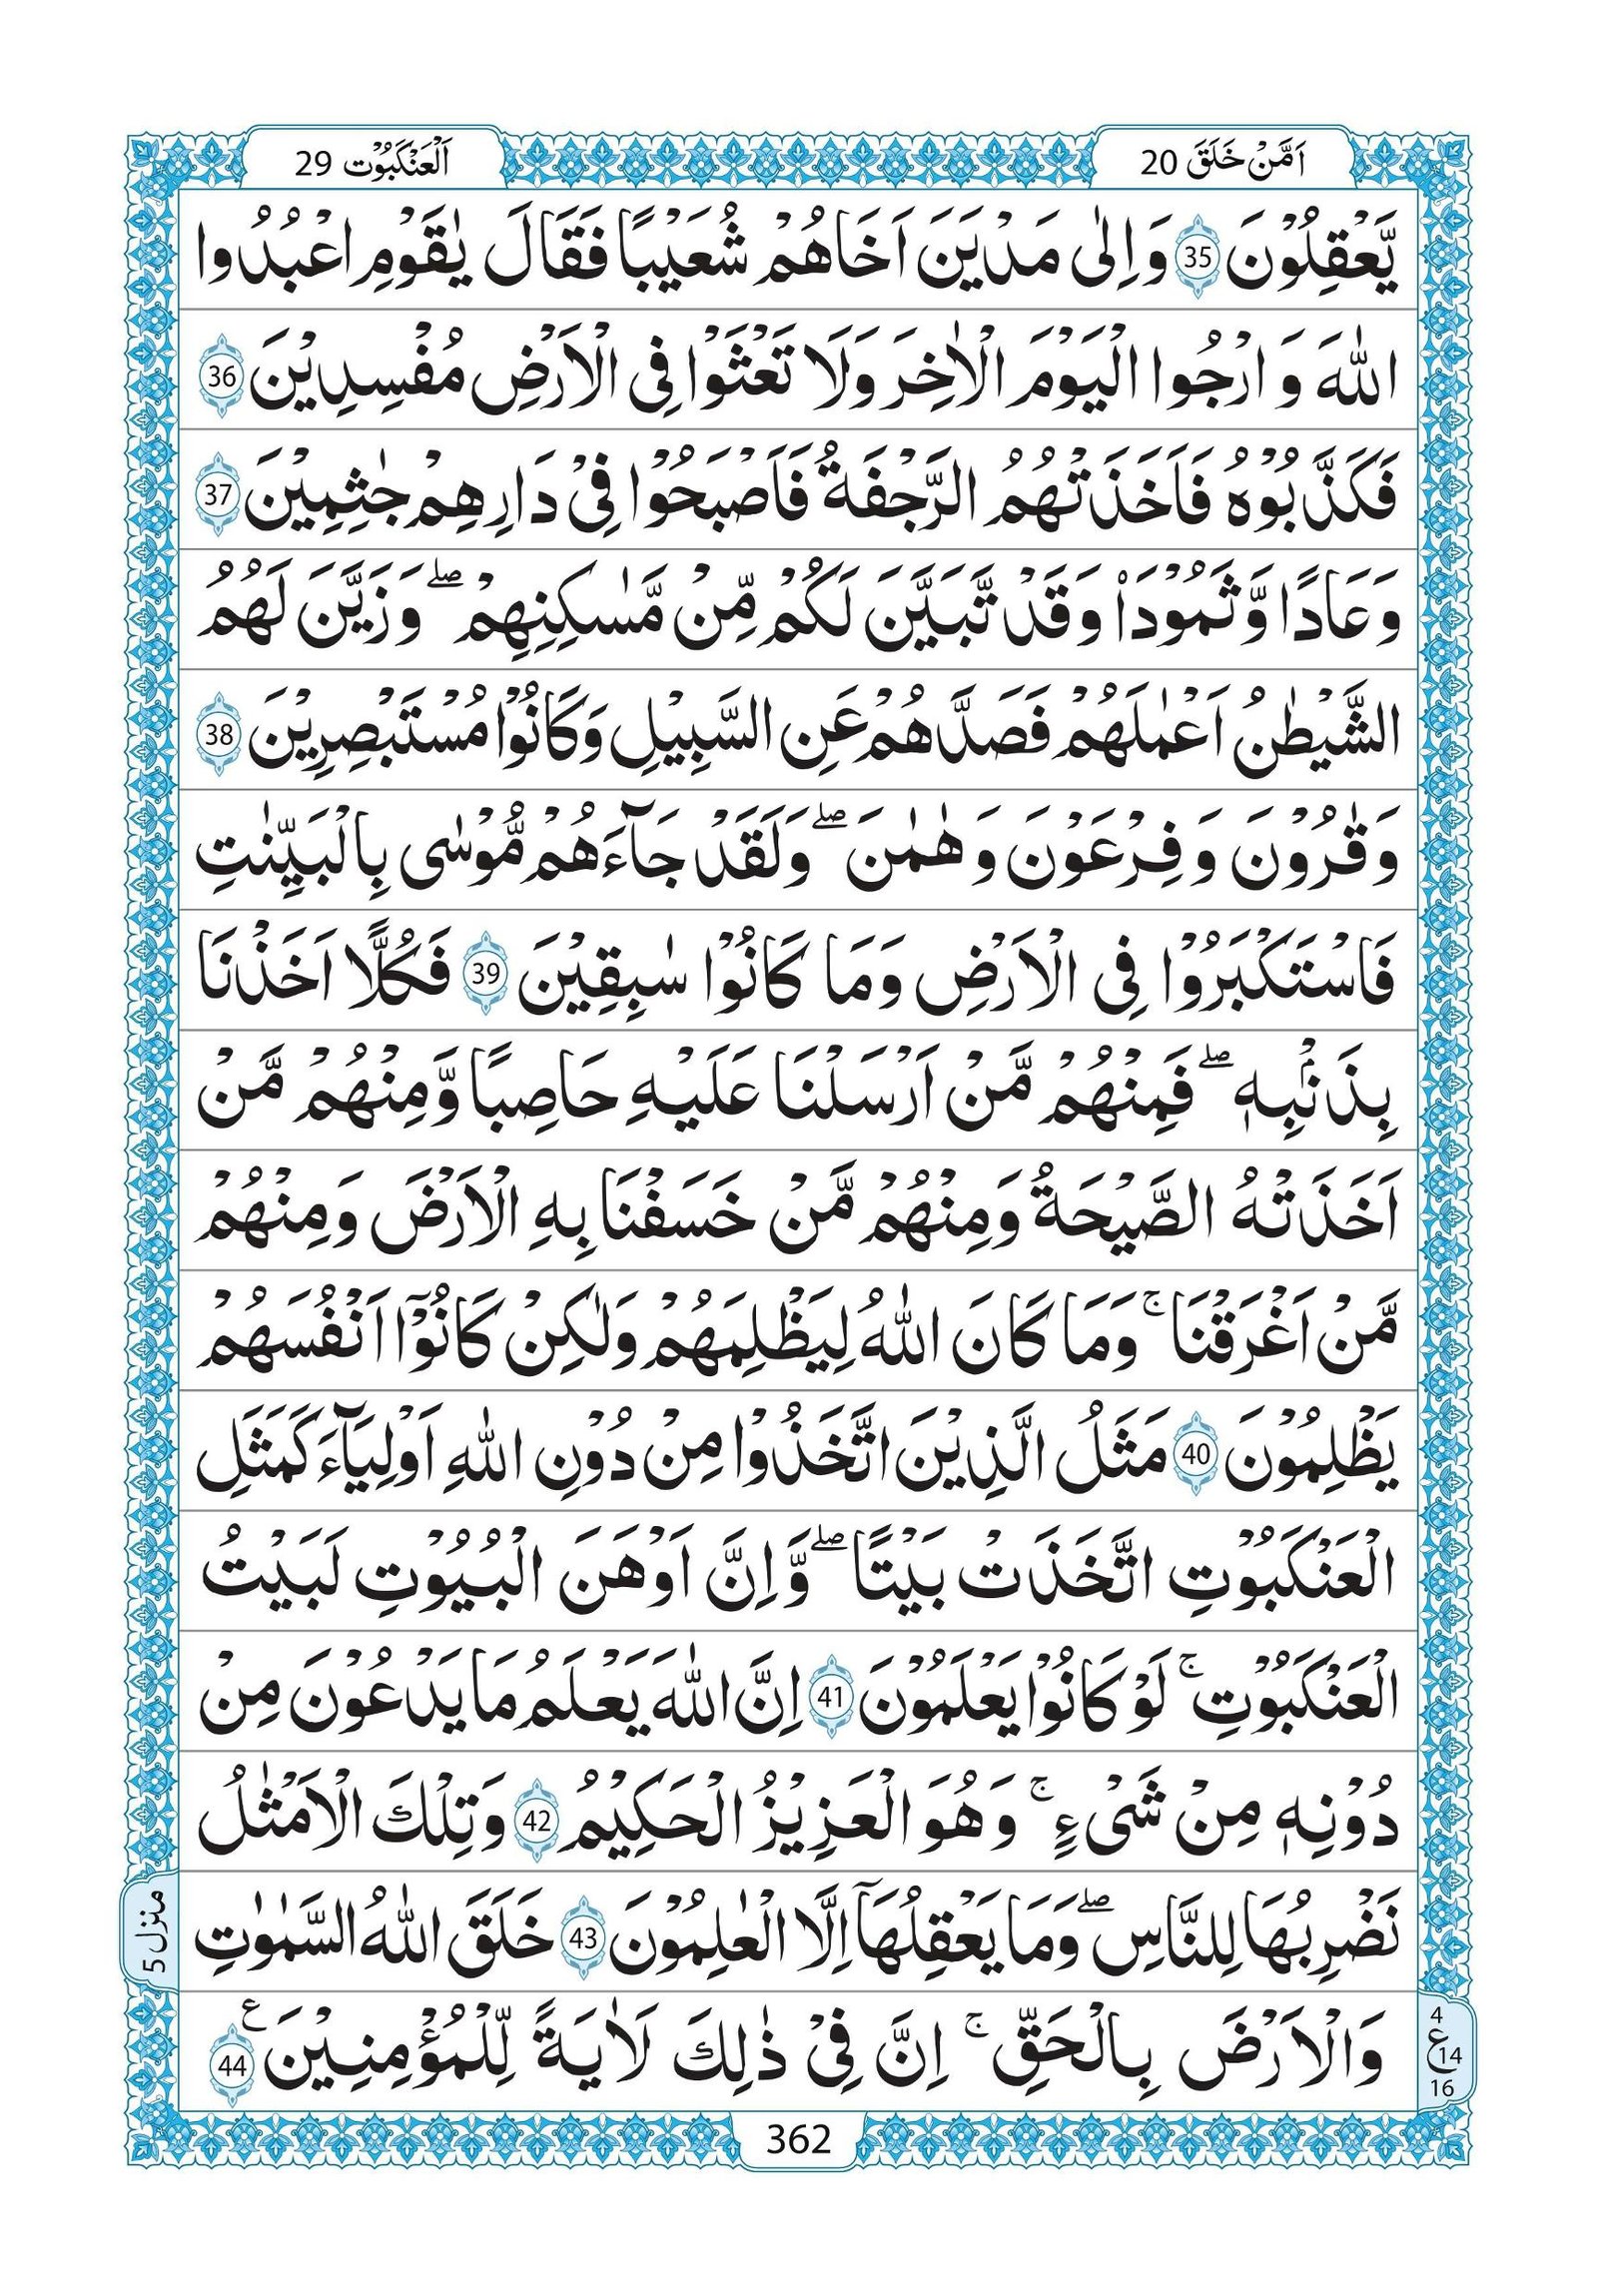 اَمَّنْ خَلَقَ 20
اَلْعَنْكَبُوْت 29
يَّعْقِلُوْنَ 35 وَ اِلٰى مَدْيَنَ اَخَاهُمْ شُعَيْبًا فَقَالَ يٰقَوْمِ اعْبُدُوا
اللّٰهَ وَ ارْجُوا الْيَوْمَ الْاٰخِرَ وَلَا تَعْثَوْا فِى الْاَرْضِ مُفْسِدِيْنَ 36
فَكَذَّبُوْهُ فَاَخَذَتْهُمُ الرَّجْفَةُ فَاَصْبَحُوْا فِىْ دَارِهِمْ جٰثِمِيْنَ 37
وَعَادًا وَّثَمُوْدَا۠ وَقَدْ تَّبَيَّنَ لَكُمْ مِّنْ مَّسٰكِنِهِمْ ۖ وَزَيَّنَ لَهُمُ
الشَّيْطٰنُ اَعْمٰلَهُمْ فَصَدَّهُمْ عَنِ السَّبِيْلِ وَكَانُوْا مُسْتَبْصِرِيْنَ 38
وَقٰرُوْنَ وَفِرْعَوْنَ وَهٰمٰنَ ۖ وَلَقَدْ جَآءَهُمْ مُّوْسٰى بِالْبَيِّنٰتِ
فَاسْتَكْبَرُوْا فِى الْاَرْضِ وَمَا كَانُوْا سٰبِقِيْنَ 39 فَكُلًّا اَخَذْنَا
بِذَنْۢبِهٖ ۖ فَمِنْهُمْ مَّنْ اَرْسَلْنَا عَلَيْهِ حَاصِبًا وَّمِنْهُمْ مَّنْ
اَخَذَتْهُ الصَّيْحَةُ وَمِنْهُمْ مَّنْ خَسَفْنَا بِهِ الْاَرْضَ وَمِنْهُمْ
مَّنْ اَغْرَقْنَا ۚ وَمَا كَانَ اللّٰهُ لِيَظْلِمَهُمْ وَلٰكِنْ كَانُوْٓا اَنْفُسَهُمْ
يَظْلِمُوْنَ 40 مَثَلُ الَّذِيْنَ اتَّخَذُوْا مِنْ دُوْنِ اللّٰهِ اَوْلِيَآءَ كَمَثَلِ
الْعَنْكَبُوْتِ اتَّخَذَتْ بَيْتًا ۖ وَّاِنَّ اَوْهَنَ الْبُيُوْتِ لَبَيْتُ
الْعَنْكَبُوْتِ ۚ لَوْ كَانُوْا يَعْلَمُوْنَ 41 اِنَّ اللّٰهَ يَعْلَمُ مَا يَدْعُوْنَ مِنْ
دُوْنِهٖ مِنْ شَىْءٍ ۚ وَهُوَ الْعَزِيْزُ الْحَكِيْمُ 42 وَتِلْكَ الْاَمْثٰلُ
نَضْرِبُهَا لِلنَّاسِ ۖ وَمَا يَعْقِلُهَآ اِلَّا الْعٰلِمُوْنَ 43 خَلَقَ اللّٰهُ السَّمٰوٰتِ
وَالْاَرْضَ بِالْحَقِّ ۚ اِنَّ فِىْ ذٰلِكَ لَاٰيَةً لِّلْمُؤْمِنِيْنَ ع 44
منزل 5
4
ع 14
16
362